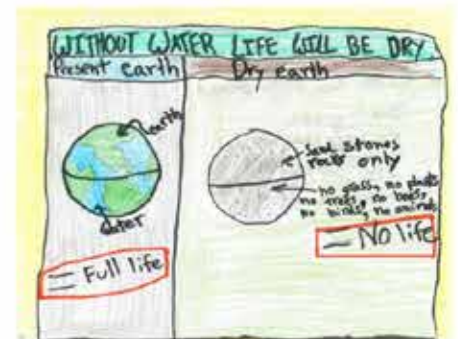 WITHOUT WATER LIFE WILL BE DRY
Present earth
Dry earth
earth
water
= Full life
Sand stones
rocks only
no grass, no plants
no trees, no bees,
no birds, no animals
= No life